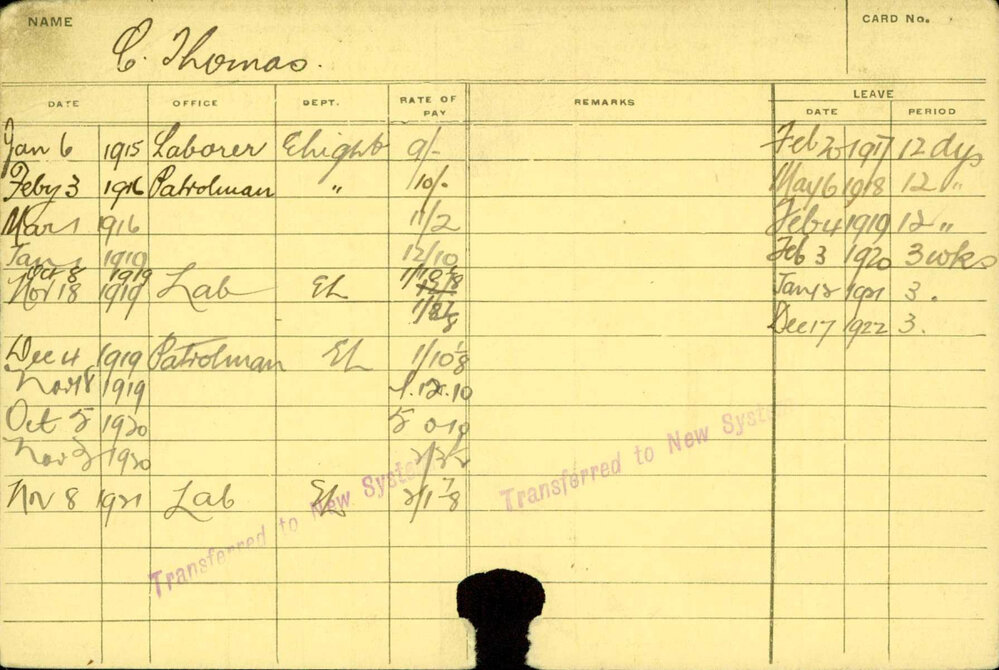 NAME
CARD No.
C. Thomas.
DATE OFFICE DEPT. RATE OF PAY REMARKS LEAVE
DATE PERIOD
Jan 6 1915 Laborer Elight 9/- Feb 20 1917 12 dys
Feby 3 1916 Patrolman " 10/- May 6 1918 12 "
Mar 1 1916 11/2 Feb 4 1919 12 "
Jan 1 1919 12/10 Feb 3 1920 3 wks
Oct 8 1919
Nov 18 1919 Lab EL Jan 12 1921 3.
Dec 17 1922 3.
Dec 4 1919 Patrolman EL
Nov 18 1919
Oct 5 1920
Nov 1920
Nov 8 1921 Lab EL
Transferred to New System
Transferred to New System